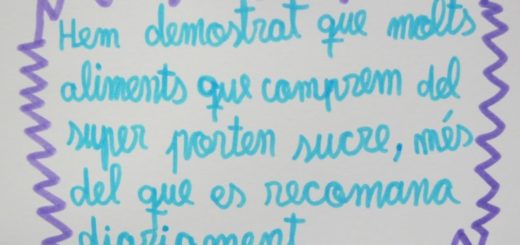 Hem demostrat que molts
aliments que comprem del
super porten sucre, més
del que es recomana
diariament